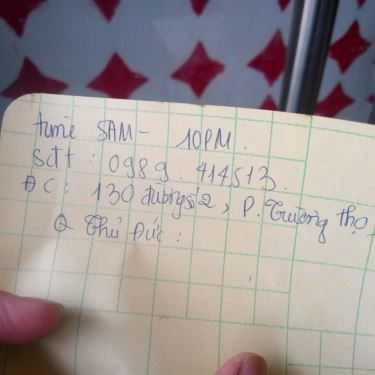 time 5AM - 10PM.
sđt: 0989.414513.
ĐC: 130 đường số 2, P. Trường thọ,
Q Thủ Đức: